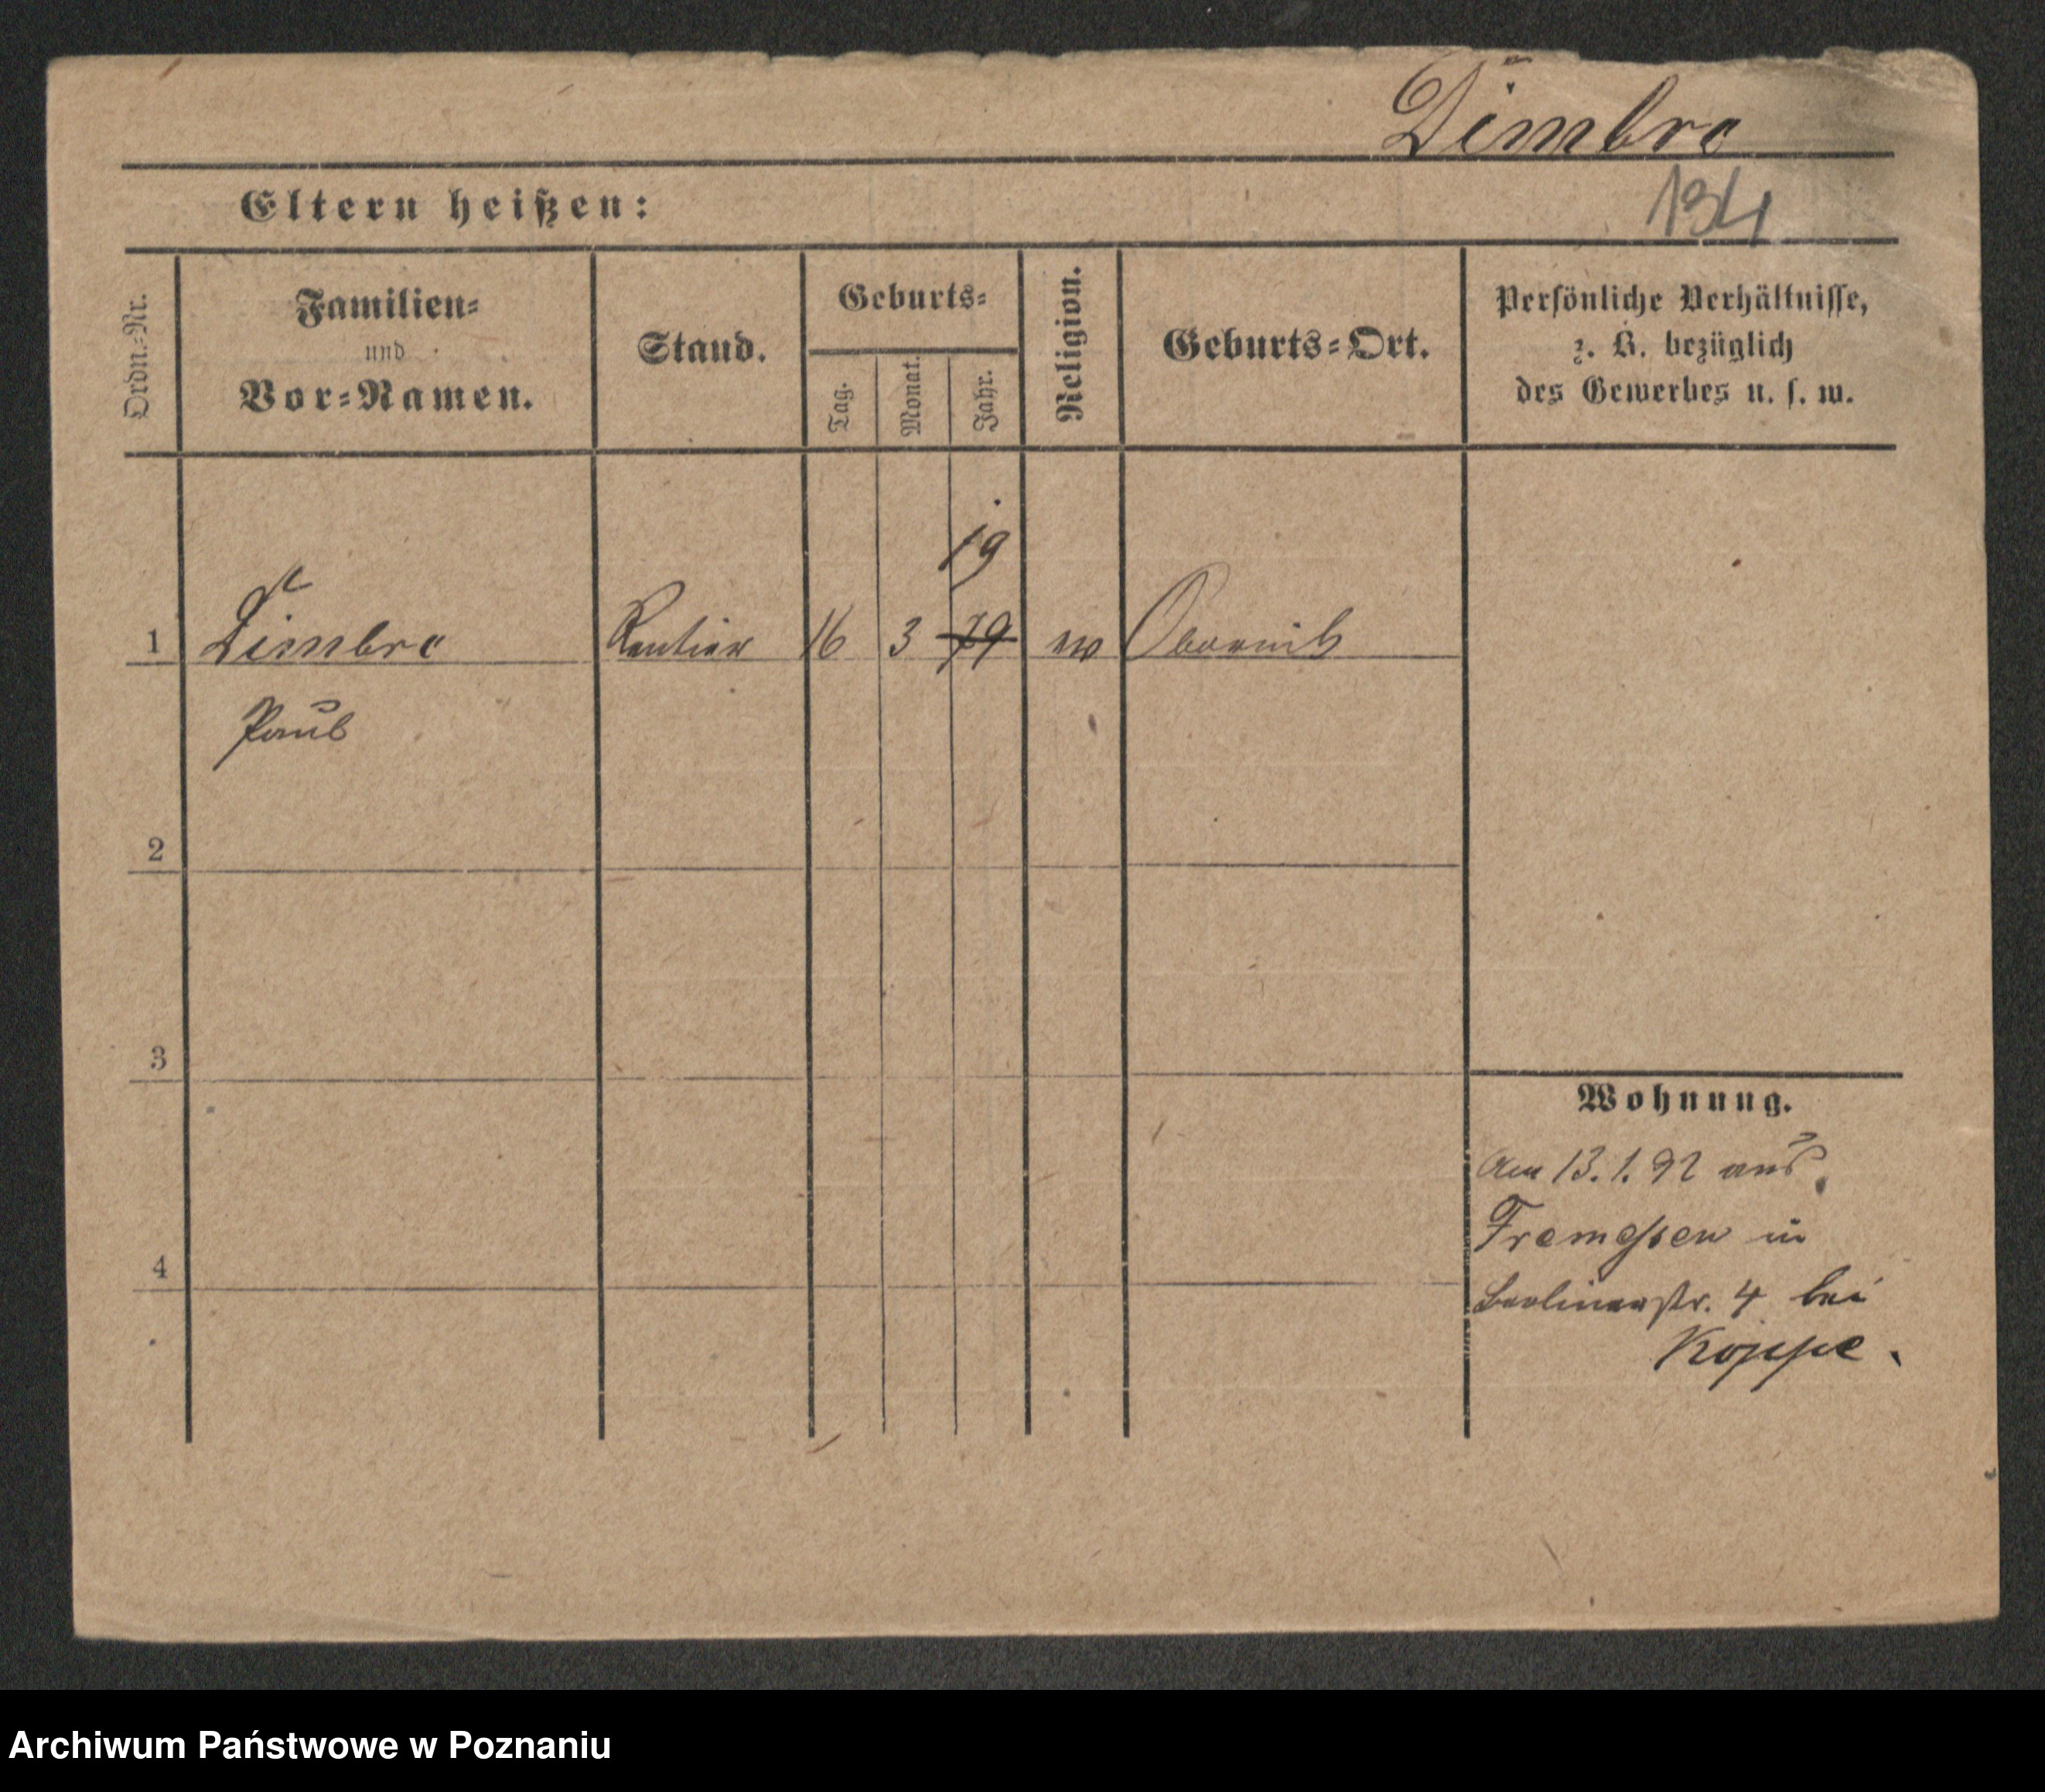 Dimbro
134
Eltern heißen:
Ordn.-Nr.
Familien-
und
Vor-Namen.
Stand.
Geburts-
Tag.
Monat.
Jahr.
Religion.
Geburts-Ort.
Persönliche Verhältnisse,
z. B. bezüglich
des Gewerbes u. s. w.
19
1 Dimbro Rentier 16 3 79 ev Obornik
Paul
2
3
Wohnung.
Am 13.1.92 aus
Tremessen in
4
Berlinerstr. 4 bei
Koppe.
Archiwum Państwowe w Poznaniu